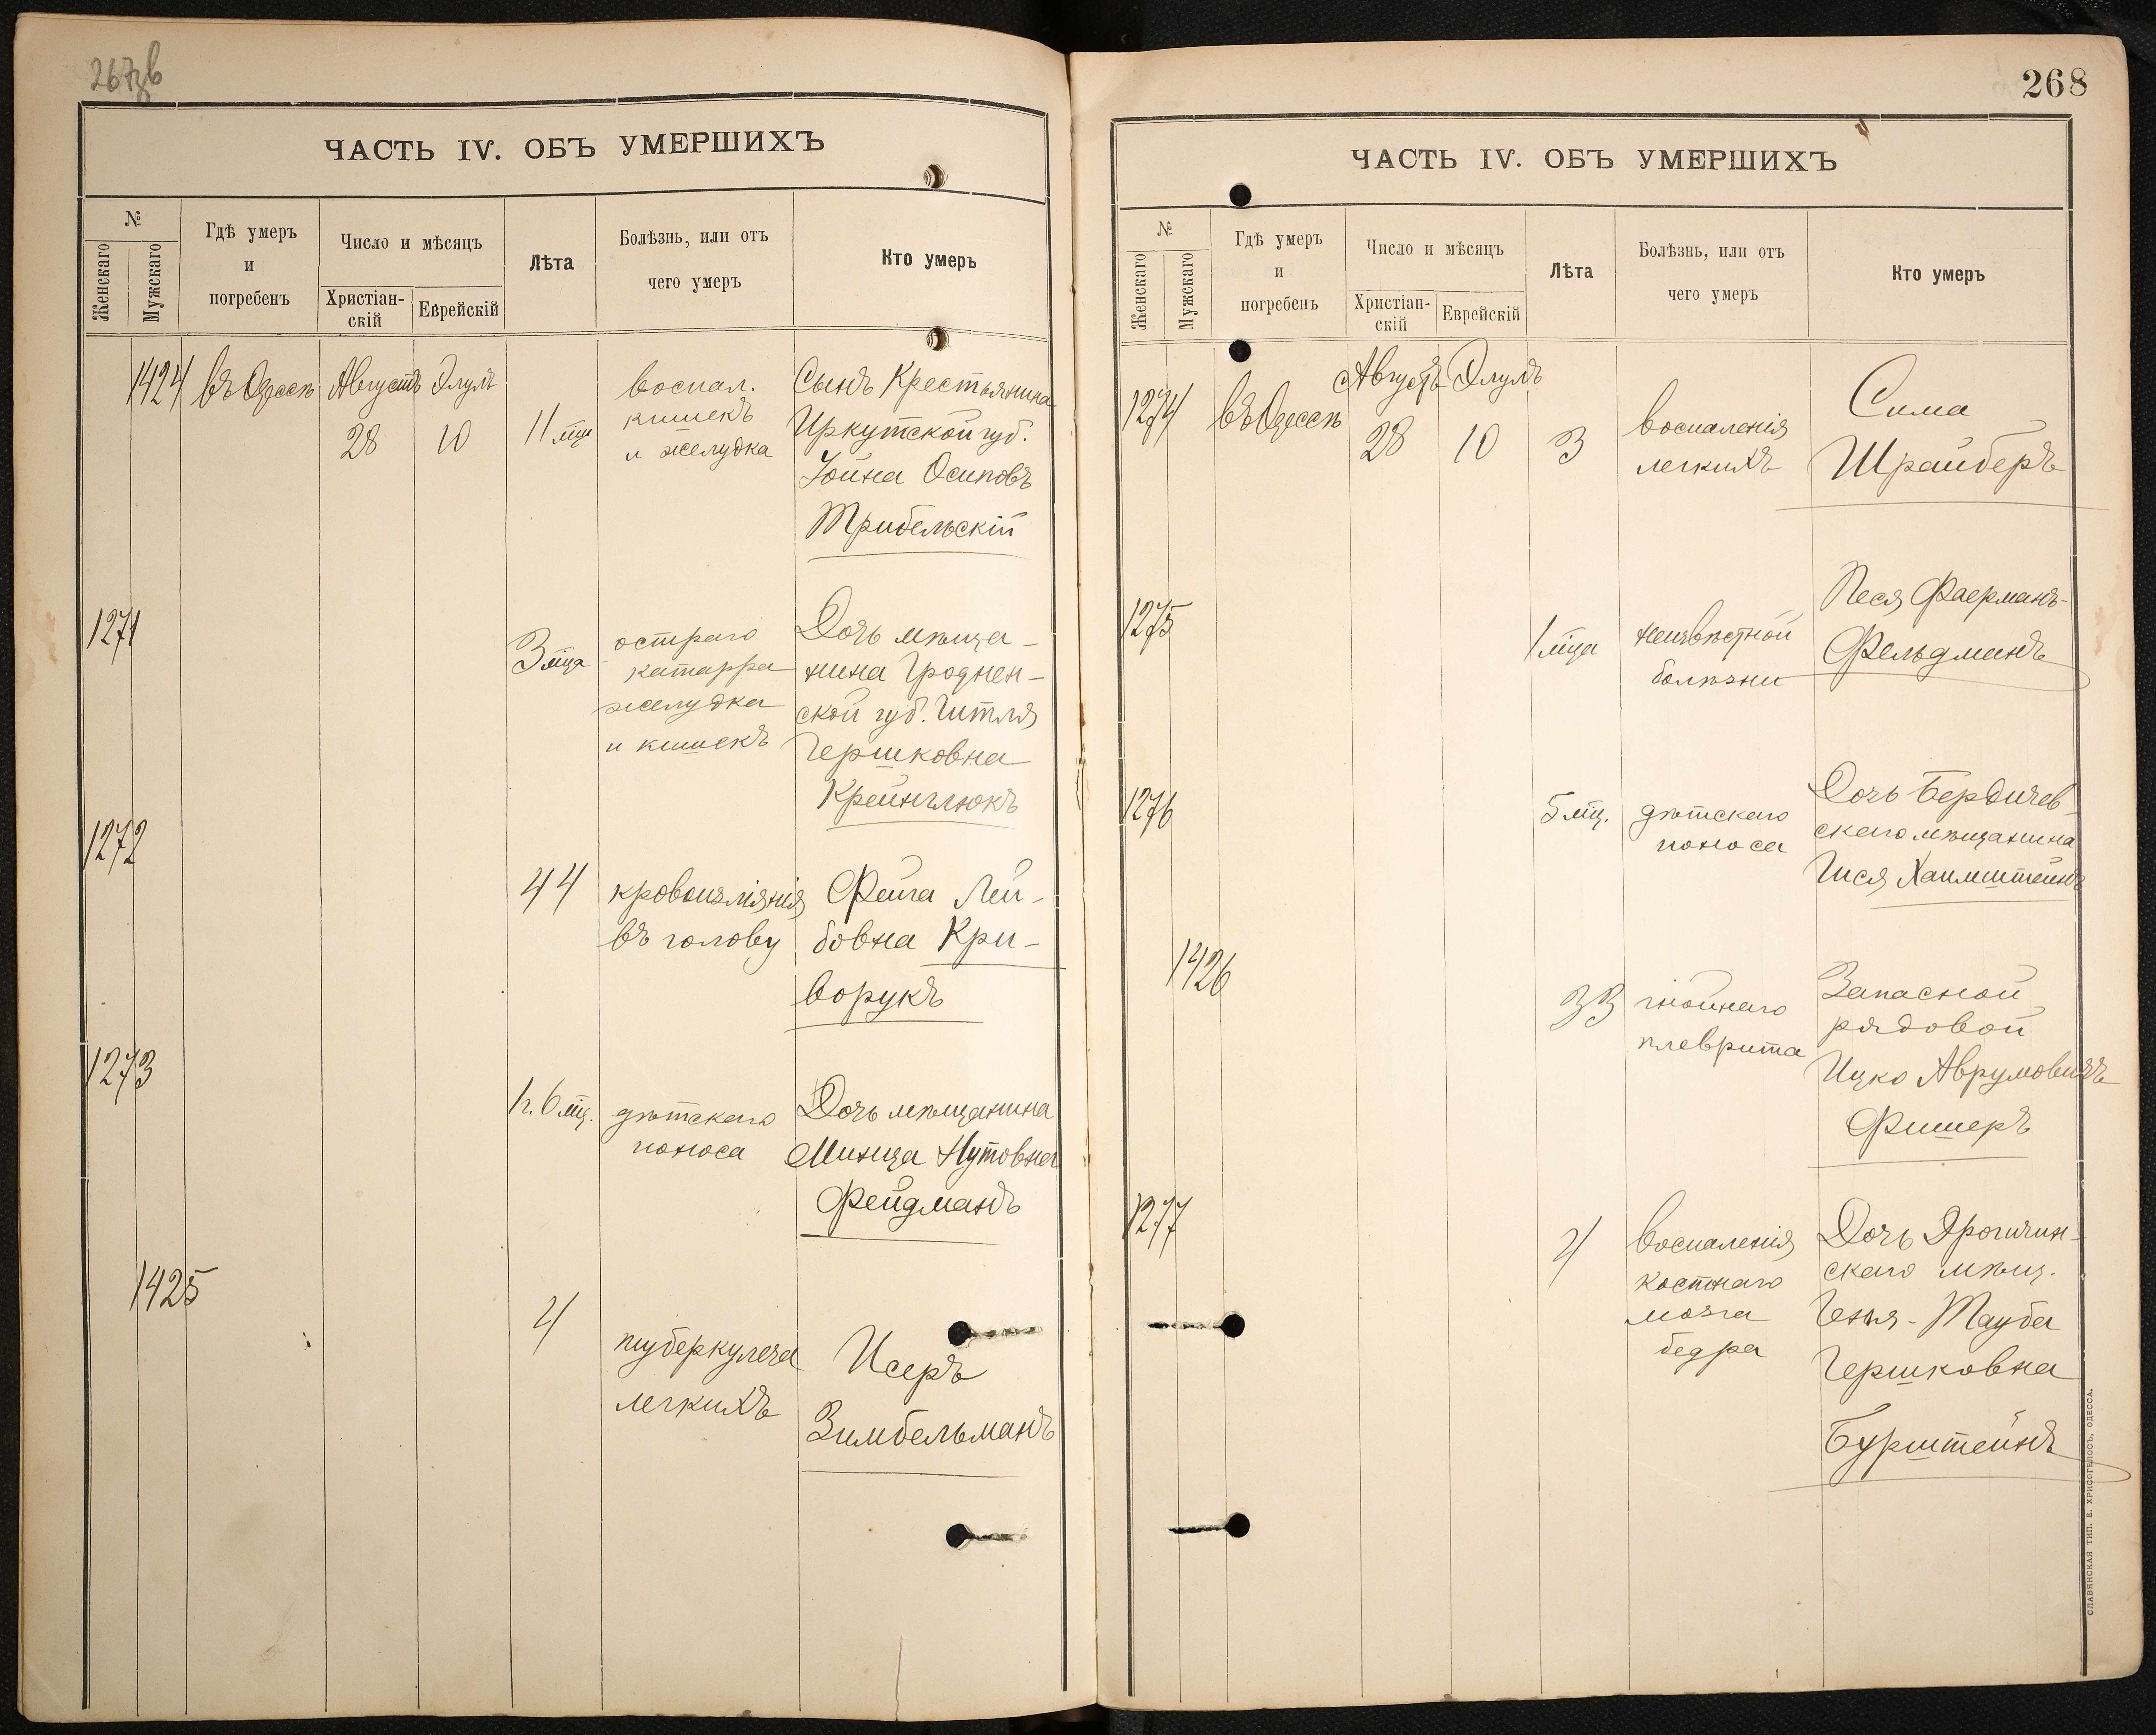 267зв
ЧАСТЬ IV. ОБЪ УМЕРШИХЪ
№
Женскаго
Мужскаго
Гдѣ умеръ
и
погребенъ
Число и мѣсяцъ
Христіан-
скій
Еврейскій
Лѣта
Болѣзнь, или отъ
чего умеръ
Кто умеръ
1424
въ Одессѣ
Августъ
28
Элулъ
10
11 мца
воспал.
кишекъ
и желудка
Сынъ Крестьянина
Иркутской губ.
Іойна Осиповъ
Трибельскій
1271
3 мца
остраго
катарра
желудка
и кишекъ
Дочь мѣща-
нина Гроднен-
ской губ. Гитля
Гершковна
Крейнглюкъ
1272
44
кровоизліянія
въ голову
Фейга Лей-
бовна Кри-
ворукъ
1273
1 г. 6 мц.
дѣтскаго
поноса
Дочь мѣщанина
Минца Нутовна
Фейдманъ
1425
4
туберкулеза
легкихъ
Исеръ
Зимбельманъ
268
ЧАСТЬ IV. ОБЪ УМЕРШИХЪ
№
Женскаго
Мужскаго
Гдѣ умеръ
и
погребенъ
Число и мѣсяцъ
Христіан-
скій
Еврейскій
Лѣта
Болѣзнь, или отъ
чего умеръ
Кто умеръ
1274
въ Одессѣ
Августъ
28
Элулъ
10
3
воспаленія
легкихъ
Сима
Шрайберъ
1275
1 мца
неизвѣстной
болѣзни
Песя Фаерманъ-
Фельдманъ
1276
5 мц.
дѣтскаго
поноса
Дочь Бердичев-
скаго мѣщанина
Гися Хаимштейнъ
1426
33
гнойнаго
плеврита
Запасной
рядовой
Ицко Аврумовичъ
Фишеръ
1277
4
воспаленія
костнаго
мозга
бедра
Дочь Дрогичин-
скаго мѣщ.
Геня-Тауба
Гершковна
Бурштейнъ
СЛАВЯНСКАЯ ТИП. Е. ХРИСОГЕЛОСЪ, ОДЕССА.